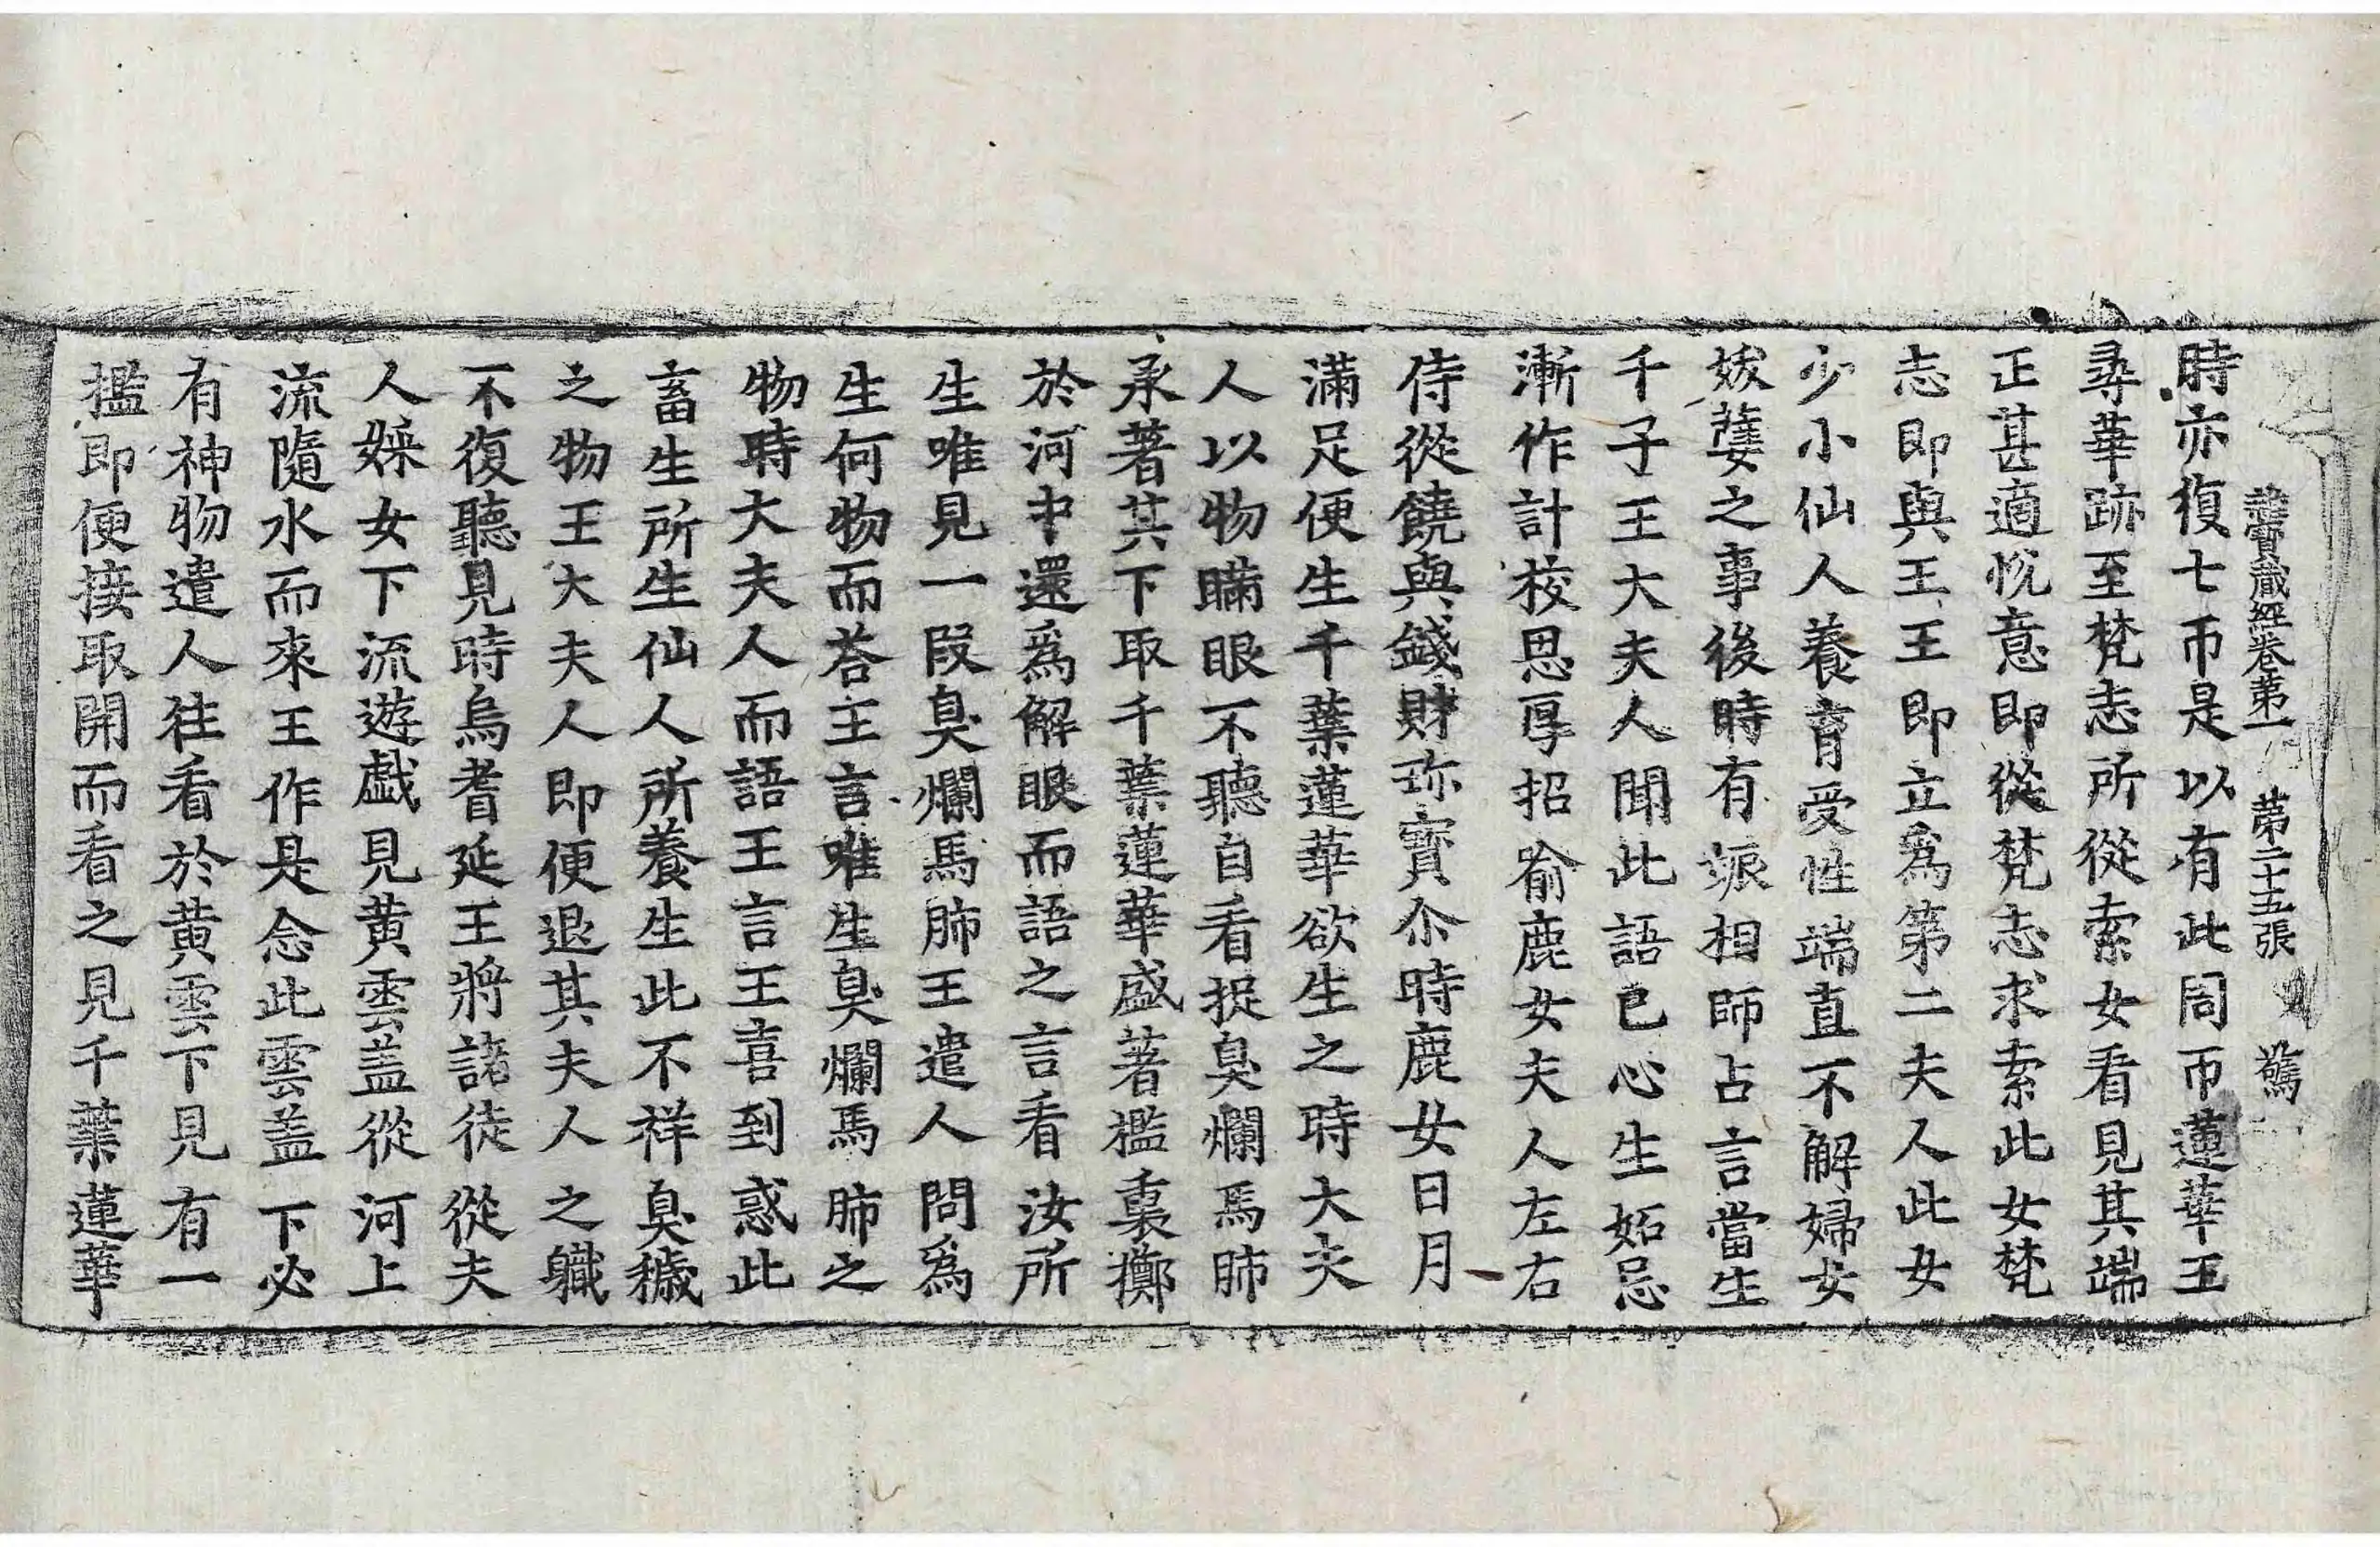 雜寶藏經卷第一 第二十五張 驚
時亦復七帀是以有此周帀蓮華王
尋華跡至梵志所從索女看見其端
正甚適悅意即從梵志求索此女梵
志即與王王即立爲第二夫人此女
少小仙人養育受性端直不解婦女
妖䕞之事後時有娠相師占言當生
千子王大夫人聞此語已心生妬忌
漸作計校恩厚招喻鹿女夫人左右
侍從饒與錢財珎寶尒時鹿女日月
滿足便生千葉蓮華欲生之時大夫
人以物瞞眼不聽自看捉臭爛馬肺
承著其下取千葉蓮華盛著襤裏擲
於河中還爲解眼而語之言看汝所
生唯見一段臭爛馬肺王遣人問爲
生何物而荅王言唯生臭爛馬肺之
物時大夫人而語王言王喜到惑此
畜生所生仙人所養生此不祥臭穢
之物王大夫人即便退其夫人之軄
不復聽見時烏耆延王將諸徒從夫
人婇女下流遊戱見黄雲盖從河上
流隨水而來王作是念此雲盖下必
有神物遣人往看於黄雲下見有一
擥即便接取開而看之見千葉蓮華